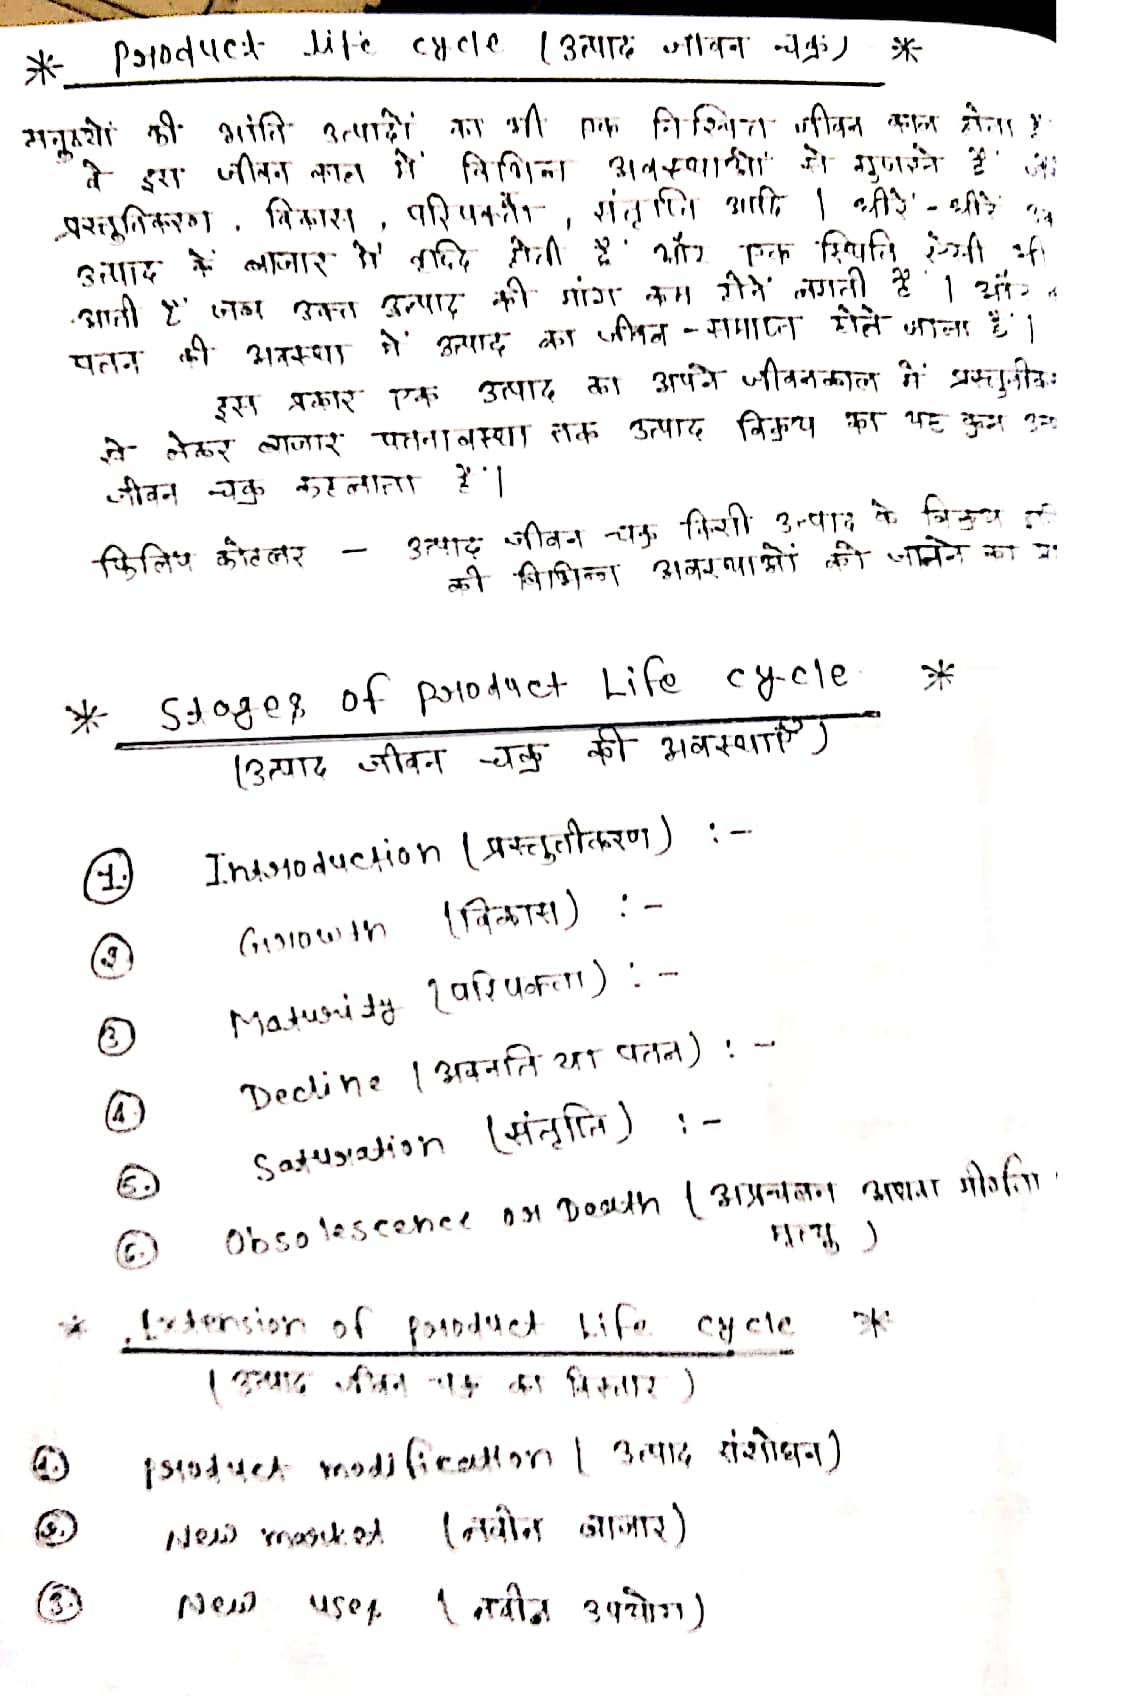 * Product Life cycle (उत्पाद जीवन चक्र) *
मनुष्यों की भांति उत्पादों का भी एक निश्चित जीवन काल होता है
वे इस जीवन काल में विभिन्न अवस्थाओं से गुजरते हैं
प्रस्तुतिकरण, विकास, परिपक्वता, संतृप्ति आदि । धीरे-धीरे
उत्पाद के बाजार में वृद्धि होती है और एक स्थिति ऐसी भी
आती है जब उक्त उत्पाद की मांग कम होने लगती है । और
पतन की अवस्था में उत्पाद का जीवन-समाप्त होते जाता है ।
इस प्रकार एक उत्पाद का अपने जीवनकाल में
से लेकर बाजार पतनावस्था तक उत्पाद विक्रय का यह क्रम
जीवन चक्र कहलाता है ।
फिलिप कोटलर - उत्पाद जीवन चक्र किसी उत्पाद के विक्रय
की विभिन्न अवस्थाओं को जानने का
* Stages of product Life cycle *
(उत्पाद जीवन चक्र की अवस्थाएँ)
1. Introduction (प्रस्तुतीकरण) :-
2 Growth (विकास) :-
3 Maturity (परिपक्वता) :-
4. Decline (अवनति या पतन) :-
5. Saturation (संतृप्ति) :-
6. Obsolescence or Death (अप्रचलन अथवा
मृत्यु )
* Extension of product Life cycle *
( उत्पाद जीवन चक्र का विस्तार )
1. product modification ( उत्पाद संशोधन)
2. New market (नवीन बाजार)
3. New uses ( नवीन उपयोग)